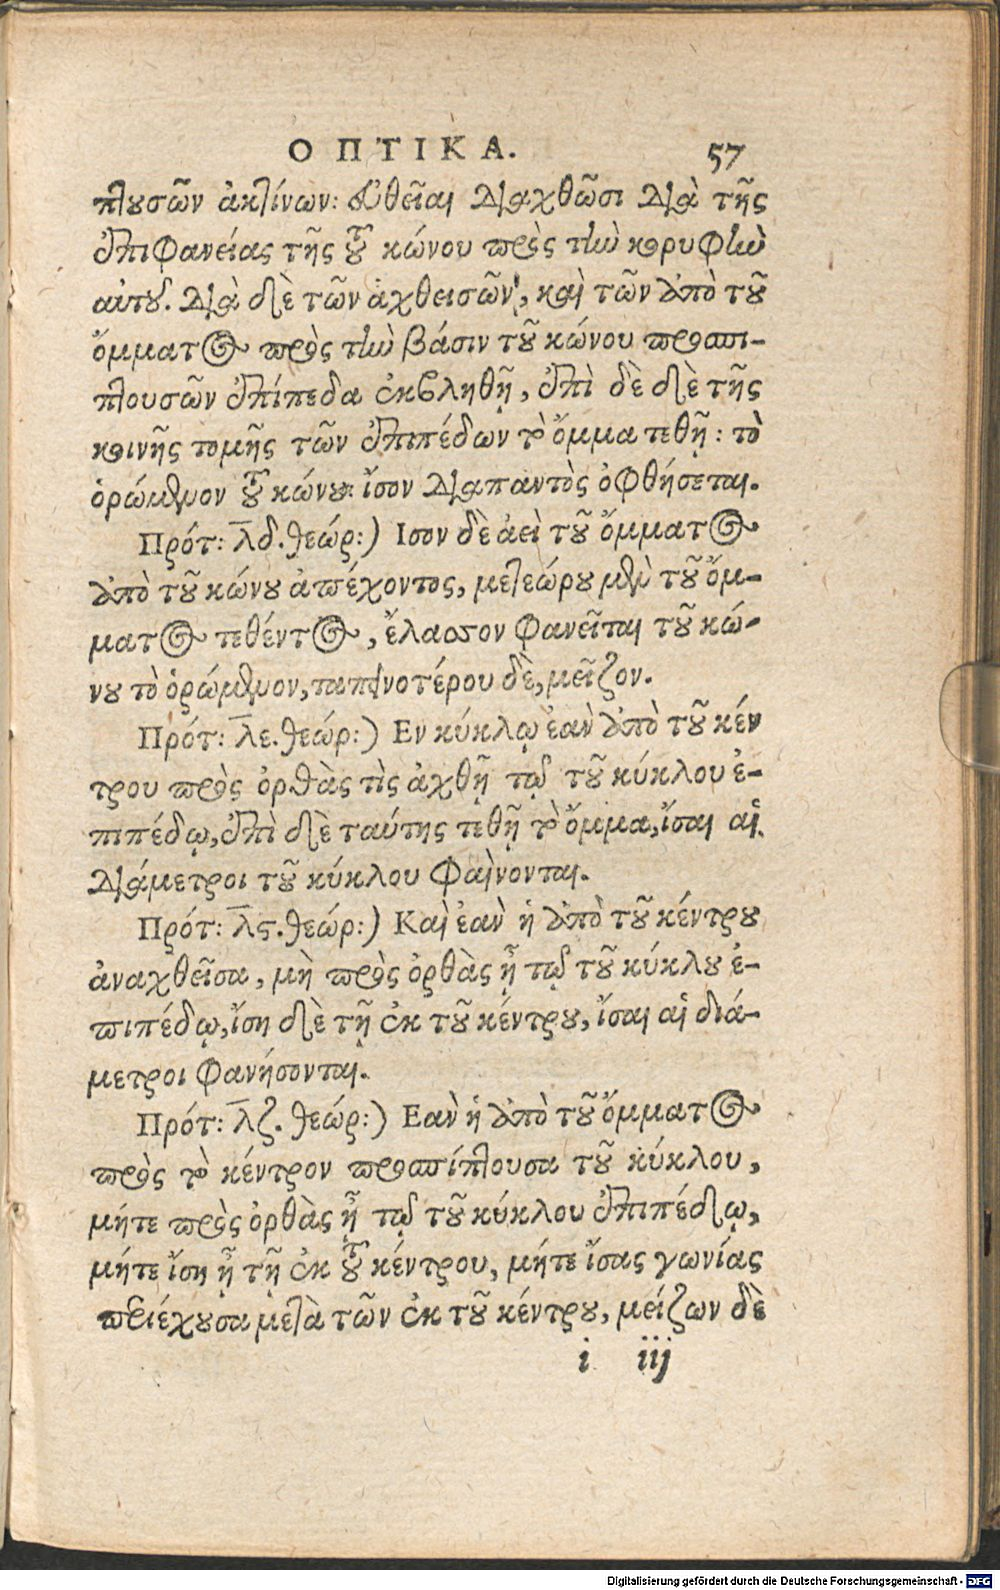 ΟΠΤΙΚΑ. 57
πτουσῶν ἀκτίνων: εὐθεῖαι διαχθῶσι διὰ τῆς
ἐπιφανείας τῆς τοῦ κώνου πρὸς τὴν κορυφὴν
αὐτοῦ. διὰ δὲ τῶν ἀχθεισῶν, καὶ τῶν ἀπὸ τοῦ
ὄμματος πρὸς τὴν βάσιν τοῦ κώνου προσπι-
πτουσῶν ἐπίπεδα ἐκβληθῇ, ἐπὶ δὲ δὲ τῆς
κοινῆς τομῆς τῶν ἐπιπέδων τὸ ὄμμα τεθῇ: τὸ
ὁρώμενον τοῦ κώνου: ἴσον διαπαντὸς ὀφθήσεται.
Πρότ: λδ. θεώρ:) Ισον δὲ ἀεὶ τοῦ ὄμματος
ἀπὸ τοῦ κώνου ἀπέχοντος, μετεώρου μὲν τοῦ ὄμ-
ματος τεθέντος, ἔλασσον φανεῖται τοῦ κώ-
νου τὸ ὁρώμενον, ταπεινοτέρου δὲ, μεῖζον.
Πρότ: λε. θεώρ:) Εν κύκλῳ ἐὰν ἀπὸ τοῦ κέν
τρου πρὸς ὀρθὰς τὶς ἀχθῇ τῷ τοῦ κύκλου ἐ-
πιπέδῳ, ἐπὶ δὲ ταύτης τεθῇ τὸ ὄμμα, ἴσαι αἱ
διάμετροι τοῦ κύκλου φαίνονται.
Πρότ: λς. θεώρ:) Καὶ ἐὰν ἡ ἀπὸ τοῦ κέντρου
ἀναχθεῖσα, μὴ πρὸς ὀρθὰς ᾖ τῷ τοῦ κύκλου ἐ-
πιπέδῳ, ἴση δὲ τῇ ἐκ τοῦ κέντρου, ἴσαι αἱ διά-
μετροι φανήσονται.
Πρότ: λζ. θεώρ:) Εὰν ἡ ἀπὸ τοῦ ὄμματος
πρὸς τὸ κέντρον προσπίπτουσα τοῦ κύκλου,
μήτε πρὸς ὀρθὰς ᾖ τῷ τοῦ κύκλου ἐπιπέδῳ,
μήτε ἴση ᾖ τῇ ἐκ τοῦ κέντρου, μήτε ἴσας γωνίας
περιέχουσα μετὰ τῶν ἐκ τοῦ κέντρου, μείζων δὲ
i iij
Digitalisierung gefördert durch die Deutsche Forschungsgemeinschaft - DFG